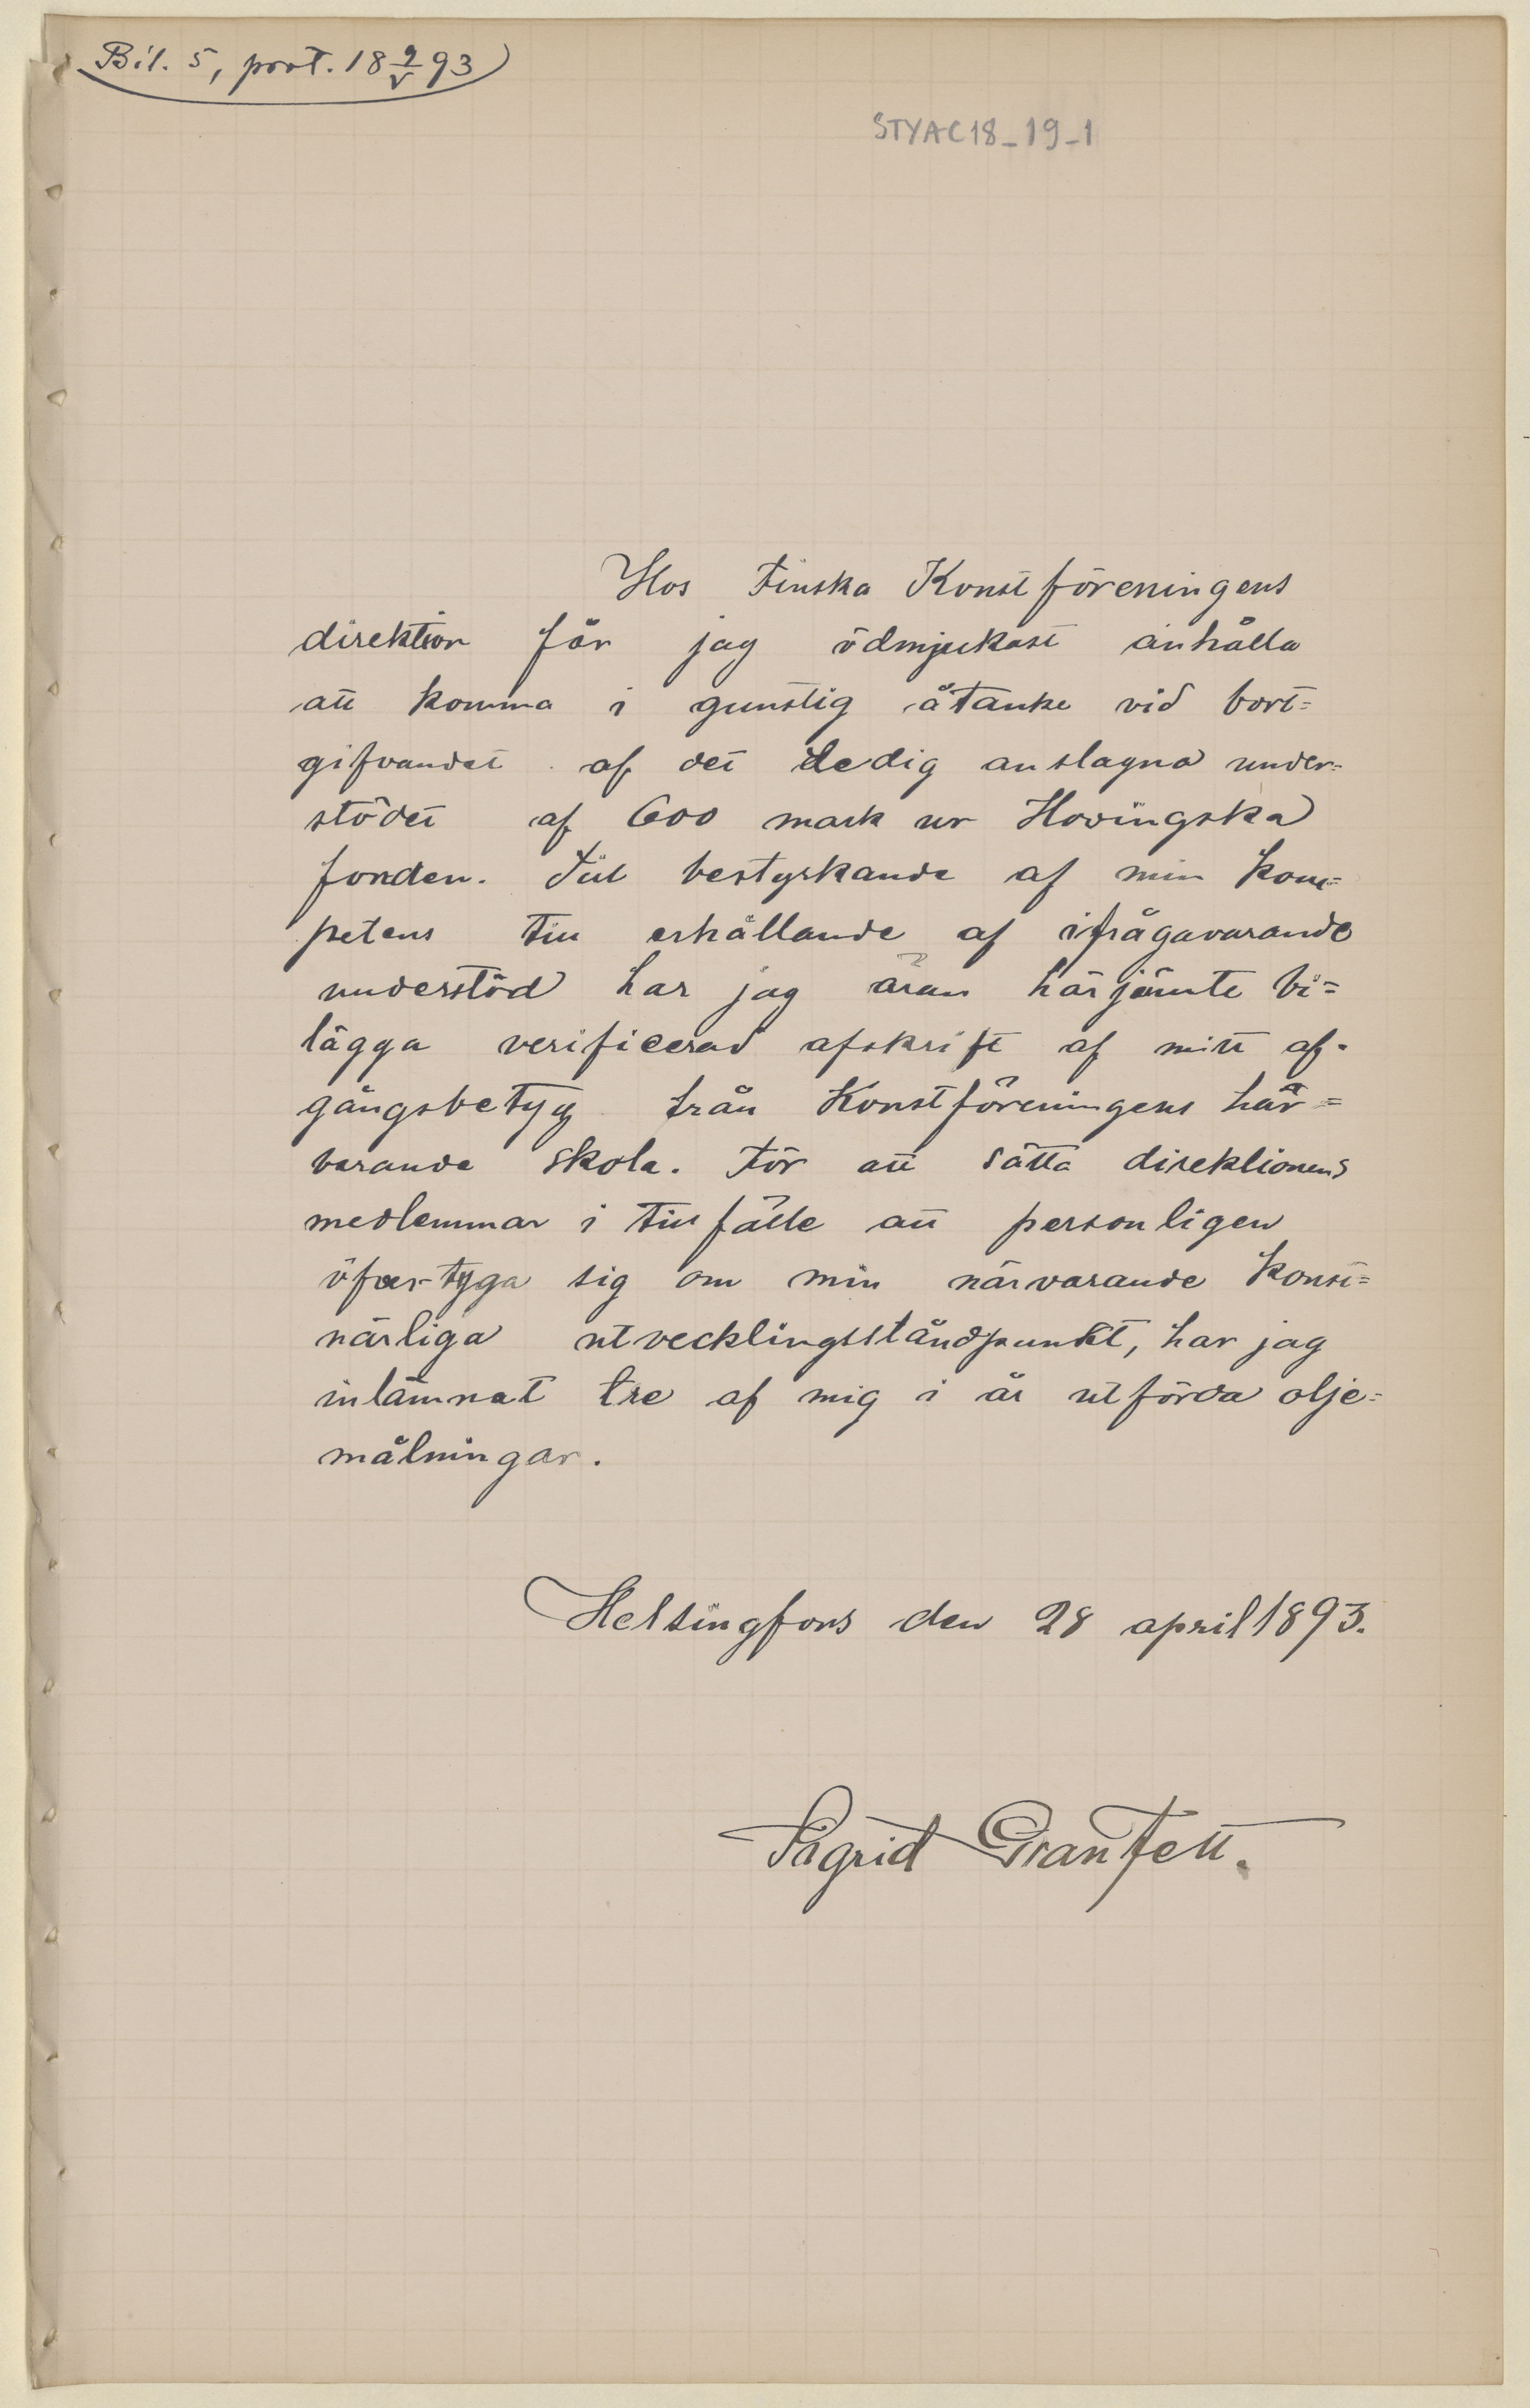 Bil. 5, prot. 18 9/V 93
STYAC18_19_1
Hos Finska Konstföreningens
direktion får jag ödmjukast anhålla
att komma i gunstig åtanke vid bort=
gifvandet af det ledig anslagna under=
stödet af 600 mark ur Hovingska
fonden. Till bestyrkande af min kom=
petens till erhållande af ifrågavarande
understöd har jag äran härjämte bi=
lägga verificerad afskrift af mitt af-
gångsbetyg från Konstföreningens här=
varande skola. För att sätta direktionens
medlemmar i tillfälle att personligen
öfvertyga sig om min närvarande konst=
närliga utvecklingsståndpunkt, har jag
inlämnat tre af mig i år utförda olje=
målningar.
Helsingfors den 28 april 1893.
Sigrid Granfelt.